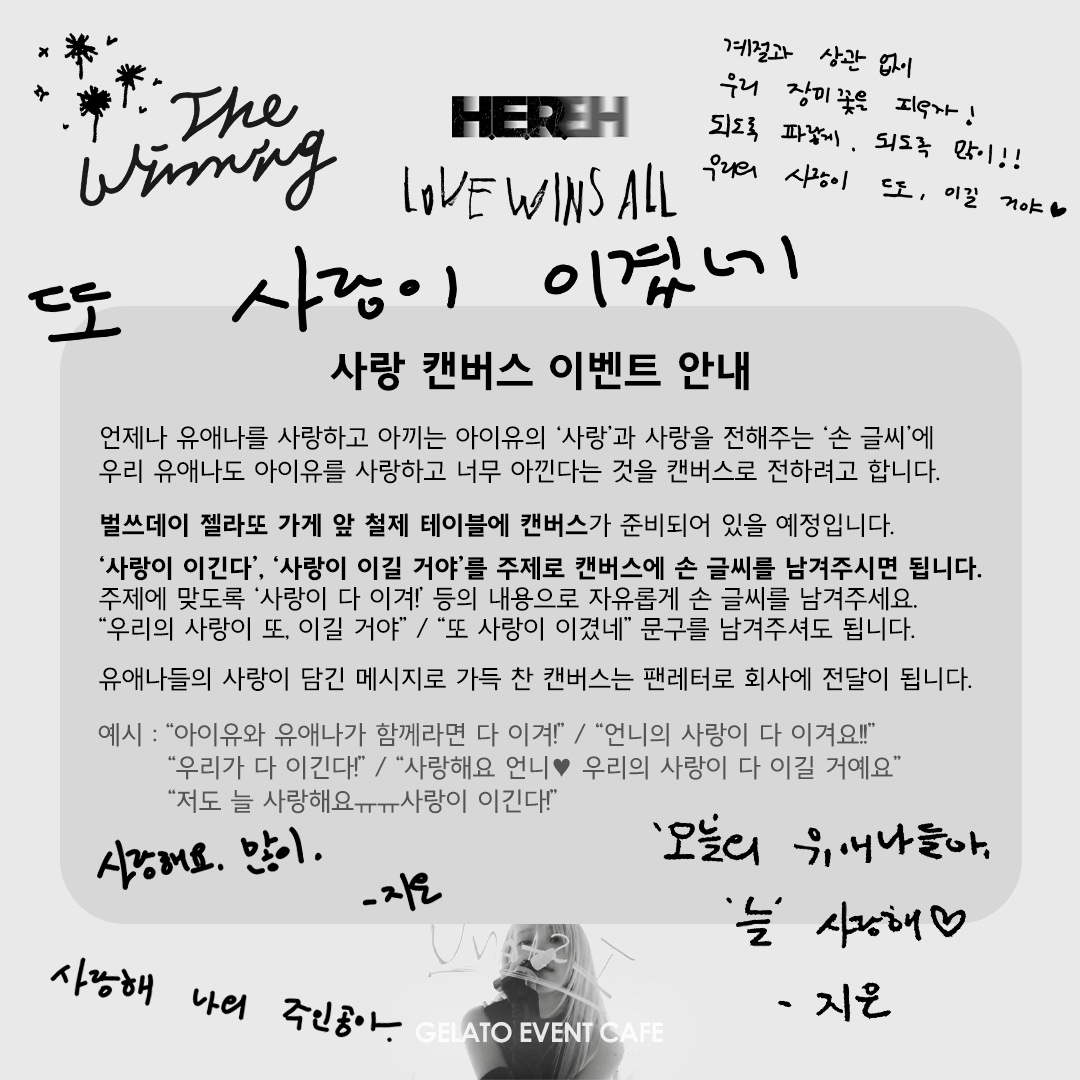 The
Winning
H.E.R.EH
LOVE WINS ALL
계절과 상관 없이
우리 장미꽃을 피우자!
되도록 파랗게, 되도록 많이!!
우리의 사랑이 또, 이길 거야♥
또 사랑이 이겼네
사랑 캔버스 이벤트 안내
언제나 유애나를 사랑하고 아끼는 아이유의 ‘사랑’과 사랑을 전해주는 ‘손 글씨’에
우리 유애나도 아이유를 사랑하고 너무 아낀다는 것을 캔버스로 전하려고 합니다.
벌쓰데이 젤라또 가게 앞 철제 테이블에 캔버스가 준비되어 있을 예정입니다.
‘사랑이 이긴다’, ‘사랑이 이길 거야’를 주제로 캔버스에 손 글씨를 남겨주시면 됩니다.
주제에 맞도록 ‘사랑이 다 이겨!’ 등의 내용으로 자유롭게 손 글씨를 남겨주세요.
“우리의 사랑이 또, 이길 거야” / “또 사랑이 이겼네” 문구를 남겨주셔도 됩니다.
유애나들의 사랑이 담긴 메시지로 가득 찬 캔버스는 팬레터로 회사에 전달이 됩니다.
예시 : “아이유와 유애나가 함께라면 다 이겨!” / “언니의 사랑이 다 이겨요!!”
“우리가 다 이긴다!” / “사랑해요 언니♥ 우리의 사랑이 다 이길 거예요”
“저도 늘 사랑해요ㅠㅠ사랑이 이긴다!”
사랑해요. 많이.
-지은
‘오늘’의 유애나들아,
‘늘’ 사랑해♡
- 지은
사랑해 나의 주인공아-
GELATO EVENT CAFE